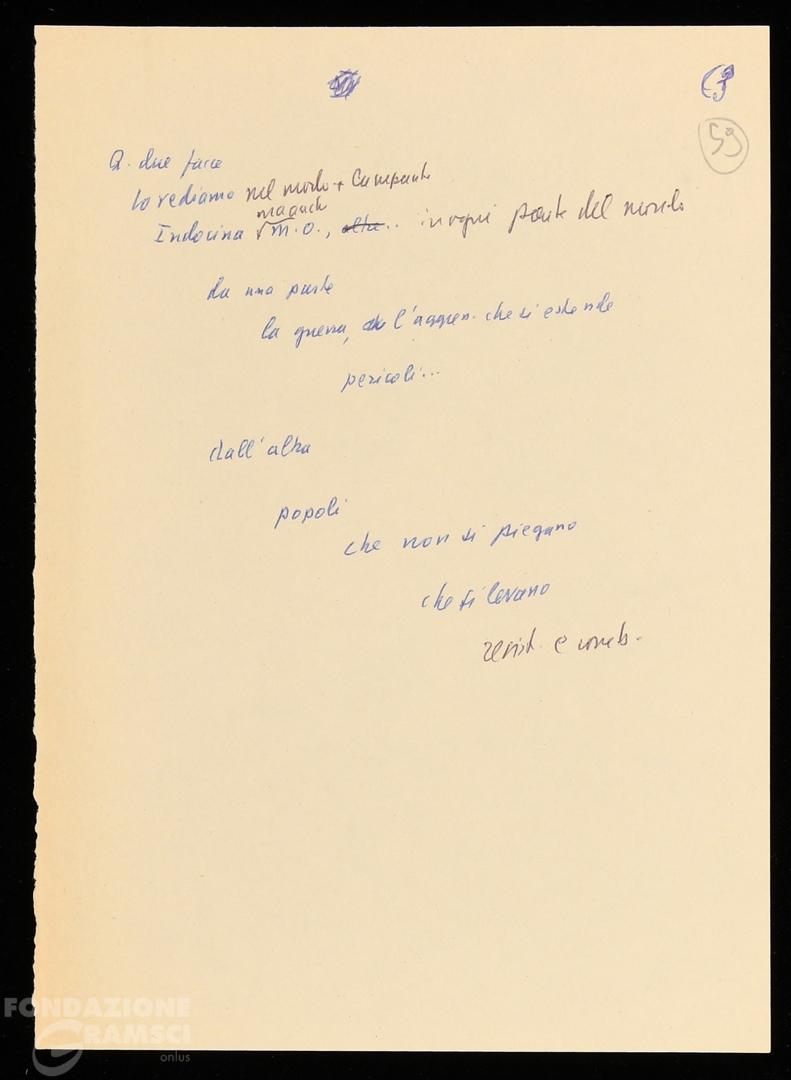 59
Q. due facce
lo vediamo nel modo + lampante
ma anche
Indocina √ M.O., altre.. in ogni parte del mondo
da una parte
la guerra, l'aggres. che si estende
pericoli...
dall'altra
popoli
che non si piegano
che si levano
resist. e comb.
FONDAZIONE
GRAMSCI
onlus